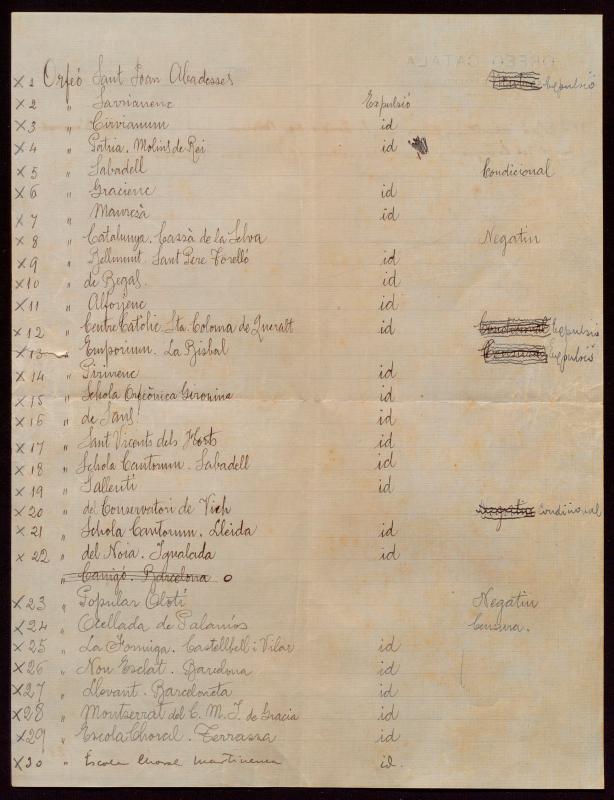 X 1 Orfeó Sant Joan Abadesses Expulsió
X 2 " Sarrianenc Expulsió
X 3 " Cirvianum id
X 4 " Patria. Molins de Rei id
X 5 " Sabadell Condicional
X 6 " Gracienc id
X 7 " Manresà id
X 8 " Catalunya. Cassà de la Selva Negatiu
X 9 " Bellmunt. Sant Pere Torelló id
X 10 " de Begas. id
X 11 " Aloxienc id
X 12 " Centre Catòlic Sta. Coloma de Queralt id Condicional Expulsió
X 13 " Emporium. La Bisbal Censura Expulsió
X 14 " Pirinenc id
X 15 " Schola Orfeònica Gironina id
X 16 " de Sans! id
X 17 " Sant Vicents dels Horts id
X 18 " Schola Cantorum. Sabadell id
X 19 " Sallentí id
X 20 " del Conservatori de Vich Negatiu Condicional
X 21 " Schola Cantorum. Lleida id
X 22 " del Noia. Igualada id
" Canigó. Barcelona o
X 23 " Popular Olotí Negatiu
X 24 " Ocellada de Palamós Censura.
X 25 " La Formiga. Castellbell i Vilar id
X 26 " Nou Esclat. Barcelona id
X 27 " Llevant. Barceloneta id
X 28 " Montserrat del C. M. I. de Gracia id
X 29 " Escola Choral. Terrassa id
X 30 " Escola Choral Martinenca id.